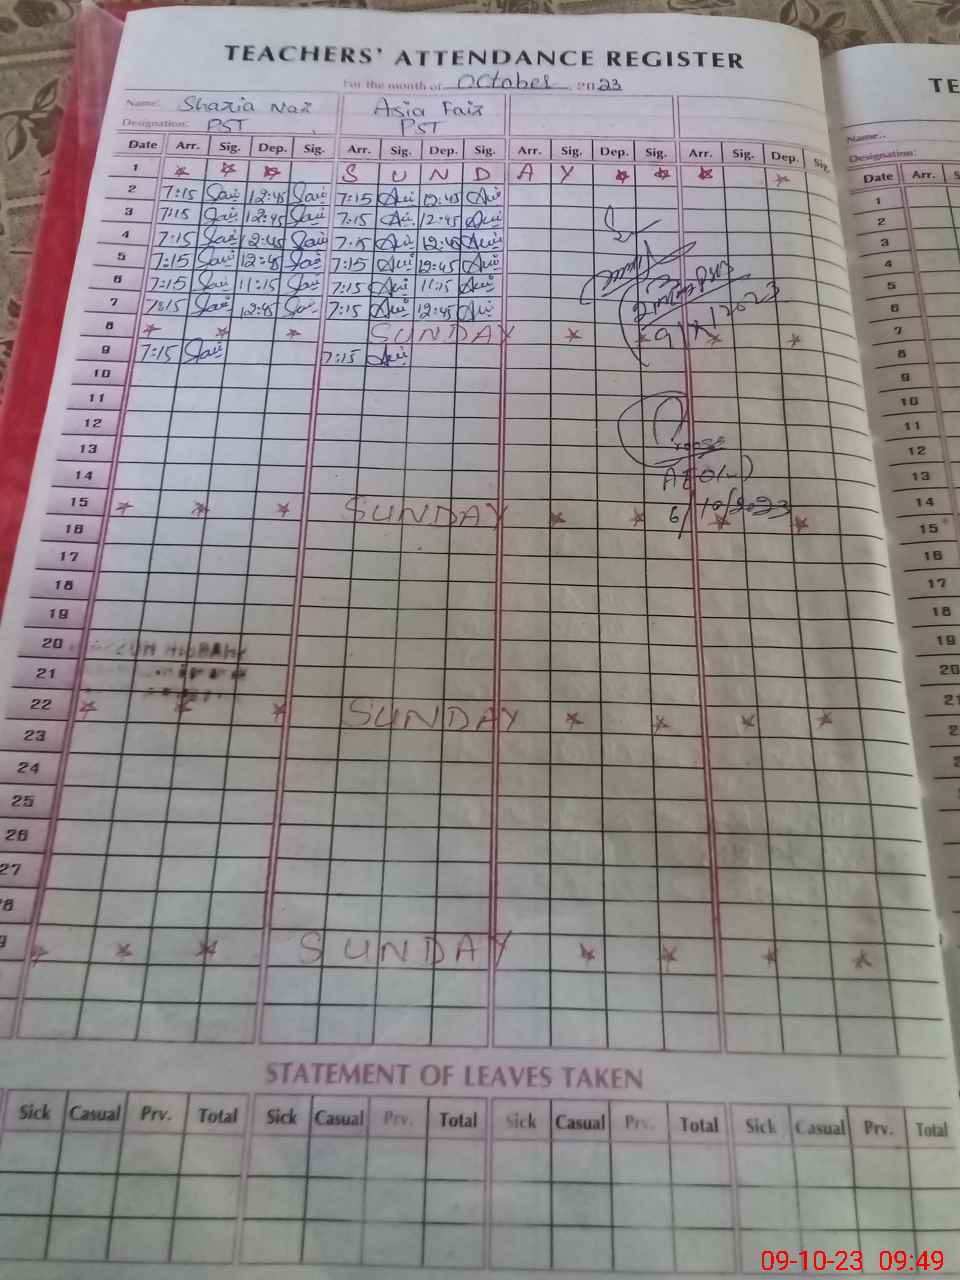 TEACHERS' ATTENDANCE REGISTER
For the month of October 2023
Name: Shazia Naz Asia Faiz
Designation: PST PST
Date Arr. Sig. Dep. Sig. Arr. Sig. Dep. Sig. Arr. Sig. Dep. Sig. Arr. Sig. Dep. Sig.
1 S U N D A Y
2 7:15 12:45 7:15 12:45
3 7:15 12:45 7:15 12:45
4 7:15 12:45 7:15 12:45
5 7:15 12:45 7:15 12:45
6 7:15 11:15 7:15 11:15
7 7:15 12:45 7:15 12:45
8 SUNDAY
9 7:15 7:15
9/X/2023
10
11
12
13
14
AEO
15 SUNDAY
6/10/2023
16
17
18
19
20
21
22 SUNDAY
23
24
25
26
27
28
9 SUNDAY
STATEMENT OF LEAVES TAKEN
Sick Casual Prv. Total Sick Casual Prv. Total Sick Casual Prv. Total Sick Casual Prv. Total
TE
Name..
Designation:
Date Arr. S
1
2
3
4
5
6
7
8
9
10
11
12
13
14
15
16
17
18
19
20
21
09-10-23 09:49